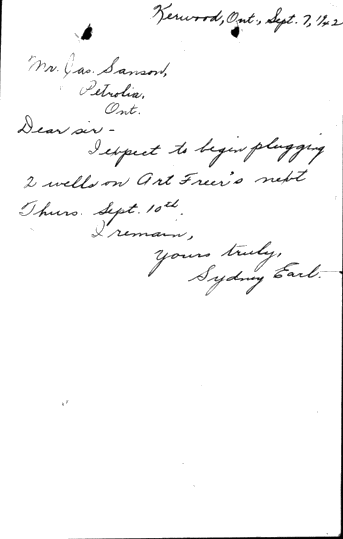 Kerwood, Ont., Sept. 7, 1/42
Mr. Jas. Sanson,
Petrolia,
Ont.
Dear sir -
I expect to begin plugging
2 wells on Art Freer's next
Thurs. Sept. 10th.
I remain,
yours truly,
Sydney Earl.